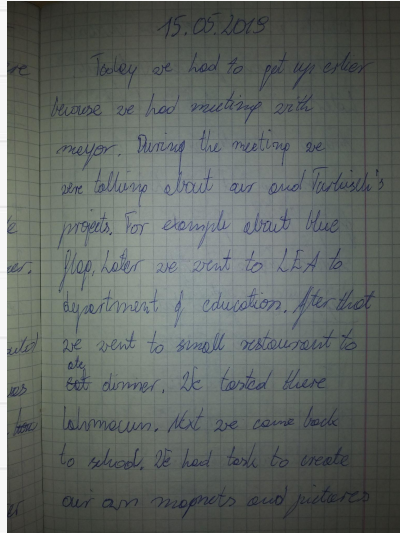 15.05.2019
Today we had to get up erlier
because we had meeting with
mayor. During the meeting we
were talking about our and Turkish's
projects. For example about blue
flag. Later we went to LEA to
department of education. After that
we went to small restaurant to
dinner. We tasted there
lahmacun. Next we came back
to school. We had task to create
our own magnets and pictures